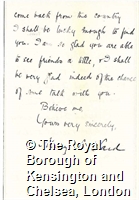 come back from the country
I shall be lucky enough to find
you. I am so glad you are able
to see friends a little, & I shall
be very glad indeed of the chance
of some talk with you.
Believe me
Yours very sincerely,
© The Royal
Borough of
Kensington and
Chelsea, London